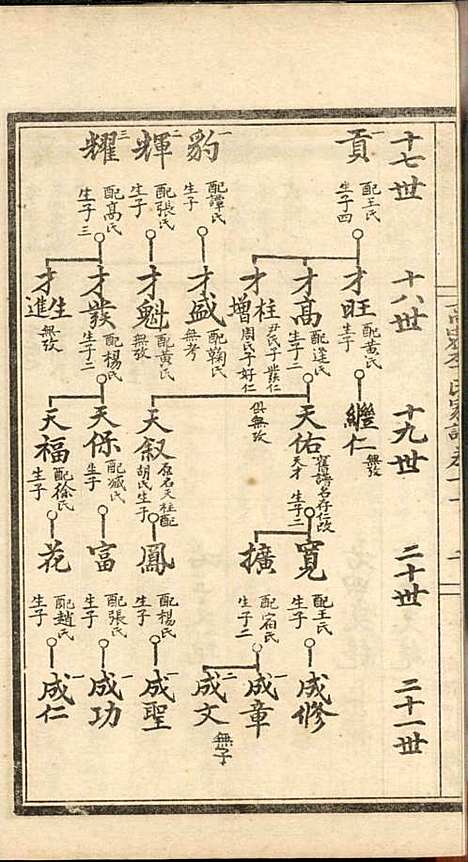 十七世
貢一
配王氏
生子四
豹一
配譚氏
生子
輝二
配張氏
生子
耀三
配高氏
生子三
十八世
才旺
配黄氏
生子
才高
配逄氏
生子二
才柱
尹氏子
才增
周氏子好仁
才盛
配鞠氏
無考
才魁
配黄氏
無攷
才發
配楊氏
生子二
才進
生
無攷
十九世
繼仁
無攷
俱無攷
天佑一
舊譜名存仁改
天才 生子二
天叙二
原名天柱配
胡氏生子
天保一
配臧氏
生子
天福二
配徐氏
生子
二十世
寬一
配王氏
生子
擴二
配宿氏
生子二
鳳一
配楊氏
生子
富一
配張氏
生子
花一
配趙氏
生子
二十一世
成修一
成章一
成文二
無子
成聖一
成功一
成仁一